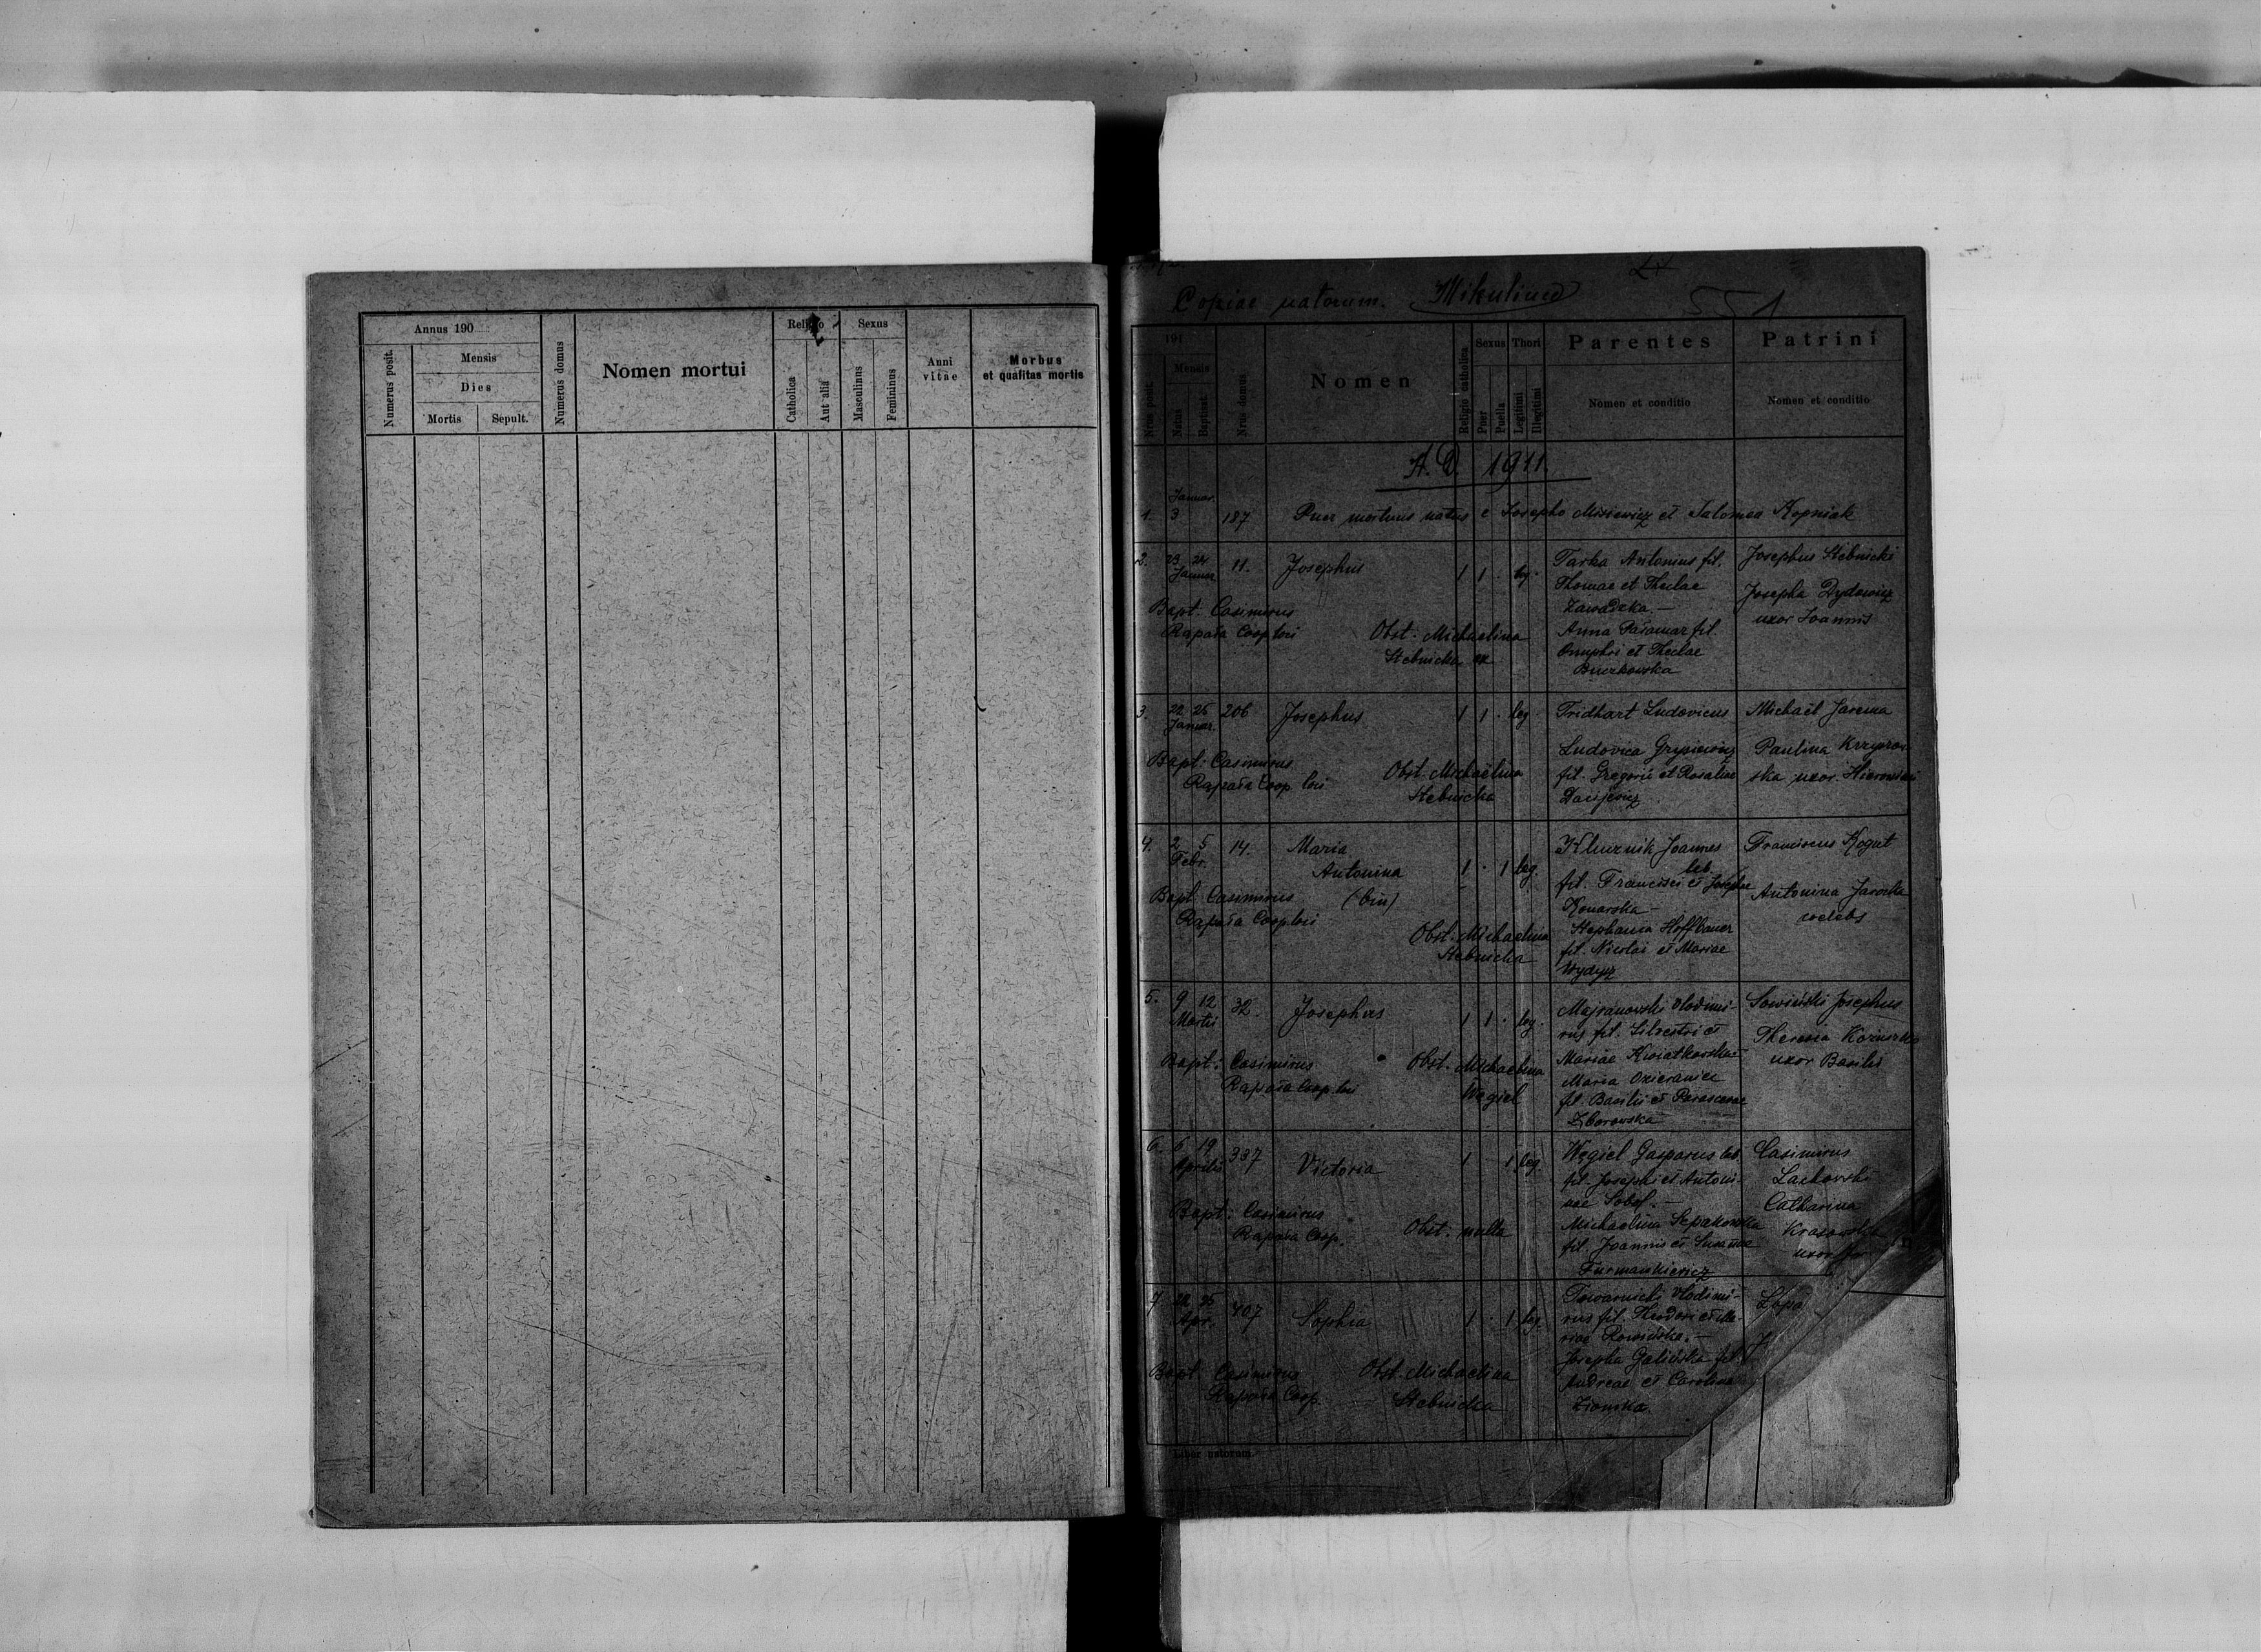 Annus 190
Numerus posit.
Mensis
Dies
Mortis
Sepult.
Numerus domus
Nomen mortui
Religio
Catholica
Aut alia
Sexus
Masculinus
Femininus
Anni
vitae
Morbus
et qualitas mortis
Copiae natorum. Mikulince
551
191
Nrus posit.
Mensis
Natus
Baptisat.
Nrus domus
Nomen
Religio catholica
Sexus
Puer
Puella
Thori
Legitimi
Illegitimi
Parentes
Nomen et conditio
Patrini
Nomen et conditio
A. D. 1911.
Januar.
1. 3 187 Puer mortuus natus e Josepho Misiewicz et Salomea Kopniak
2. 23 24 11. Josephus 1 1 . leg.
Januar
Bapt. Casimirus
Rapała Coop loci
Obst. Michaelina
Stebnicka
Tarka Antonius fil.
Thomae et Theclae
Zawadzka. —
Anna fil.
Onuphri et Theclae
Buczkowska
Josephus Stebnicki
Josepha Dydowicz
uxor Joannis
3. 22 25 206 Josephus 1 1 . leg
Januar.
Bapt. Casimirus
Rapała Coop. loci
Obst. Michaelina
Stebnicka
Fridhart Ludovicus
Ludovica Grysiewicz
fil. Gregorii et Rosaliae
Michael Jarema
Paulina
ska uxor.
4. 2 5 14. Maria 1 . 1 leg.
Febr.
Antonina
(bin)
Bapt Casimirus
Rapała Coop loci
Obst. Michaelina
Stebnicka
Klucznik Joannes
fil. Francisci et Josephae
Konarska —
Stephania Hoffbauer
fil. Nicolai et Mariae
Franciscus Kogut
Antonina Jarocka
coelebs
5. 9 12 32. Josephus 1 1 . leg.
Martii
Bapt: Casimirus
Rapała Coop. loci
Obst. Michaelina
Węgiel
Majranowski Vlodimi-
rus fil. Silvestri et
Mariae Kwiatkowska —
Maria
fil. Basilii et Parascevae
Zborowska
Sowiński Josephus
Theresia
uxor Basilii
6. 6 19 337 Victoria 1 . 1 leg.
Aprilis
Bapt: Casimirus
Rapała Coop.
Obst. nulla
Węgiel Gasparus
fil. Josephi et Antoni-
nae Sobol. —
Michaelina
fil. Joannis et Susannae
Furmankiewicz
Casimirus
Lachowski
Catharina
uxor
7 22 25 407 Sophia 1 . 1 leg.
Apr.
Bapt. Casimirus
Rapała Coop.
Obst. Michaelina
Stebnicka
Towarnicki Vlodimi-
rus fil. Theodori et Ma-
riae Rowińska. —
Josepha Galińska fil.
Andreae et Carolinae
Liber natorum.